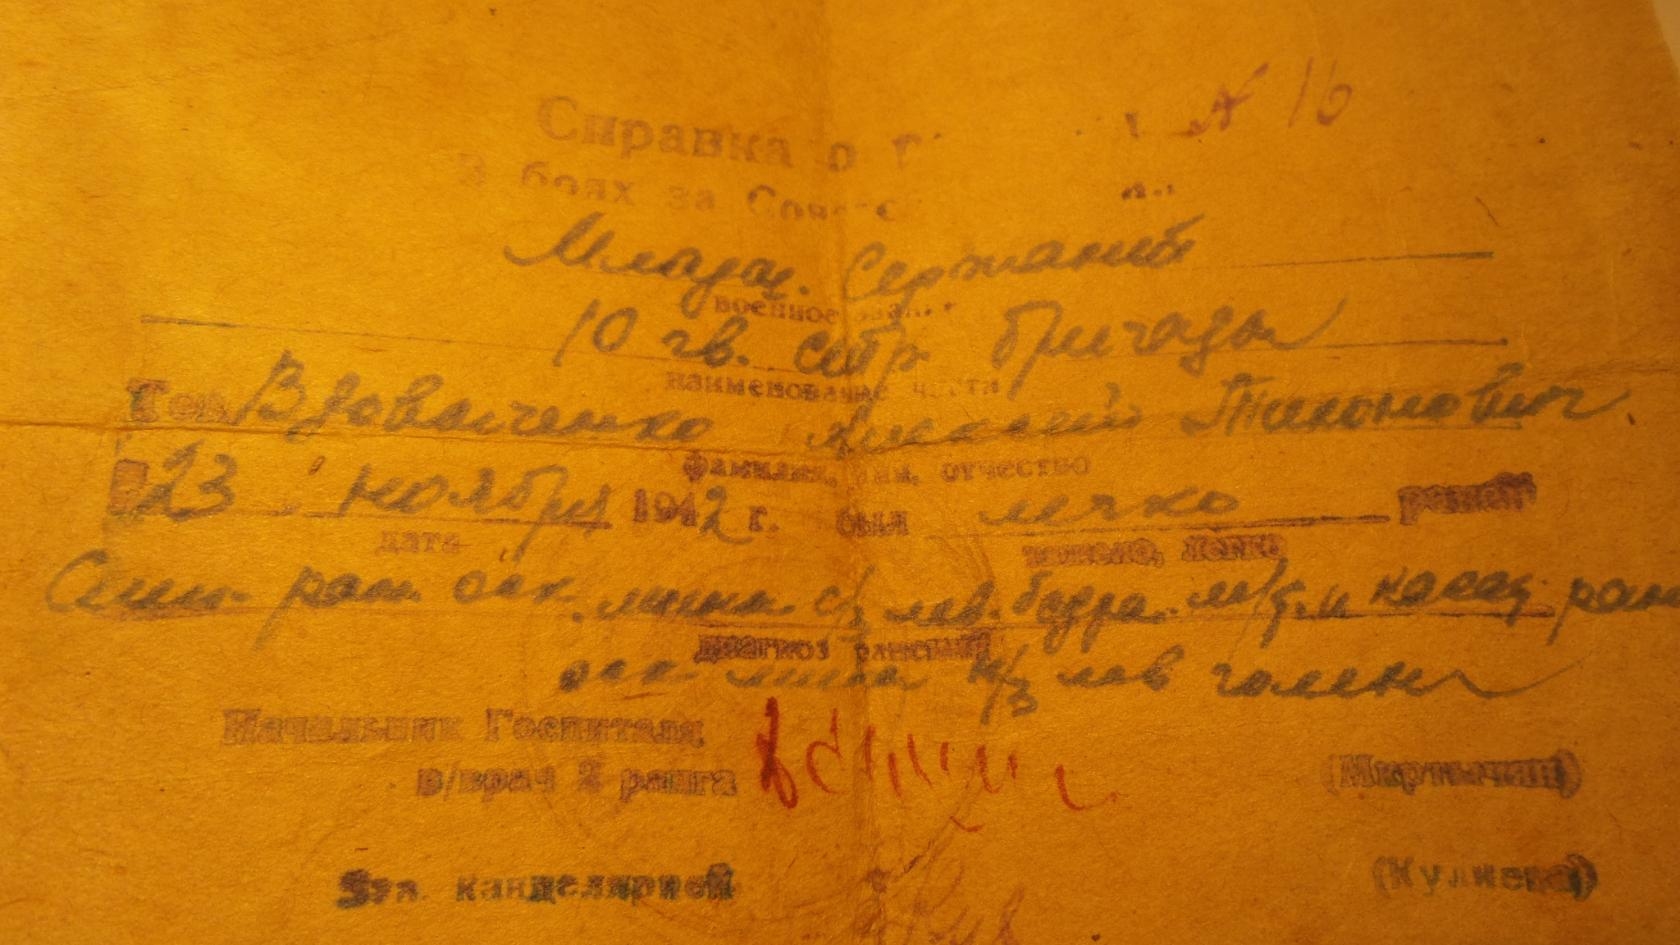 № 16
Справка о
В боях за Советс
Младш. Сержант
военное зван.
10 гв. стр. бригады
наименование части
Тов. Вдовыченко Алексей Тихонович
фамилия, имя, отчество
В 23 ноября 1942 г. был легко ранен
дата тяжело, легко
ран. оск. мины с/з лев. бедра. м/т и касат. ран
диагноз ранений
оск. мины н/з лев голени
Начальник Госпиталя
в/врач 2 ранга (Мкртычян)
Зав. канцелярией (Кулиева)